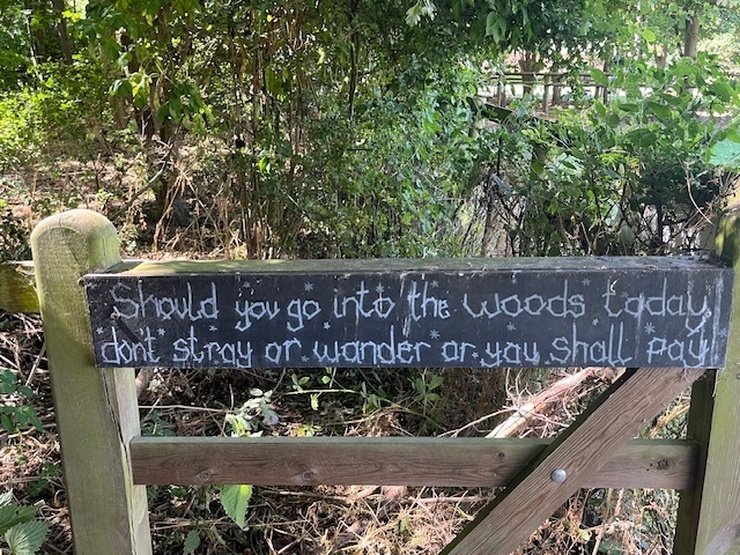 Should you go into the woods today
dont stray or wander or you shall pay!